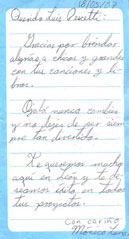 18/03/07
Querido Luis Pescetti:
Gracias por brindar
alegría a chicos y grandes
con tus canciones y li-
bros.
Ojalá nunca cambies
y no dejes de ser siem-
pre tan divertido.
Te queremos mucho
aquí en León y te de-
seamos éxito en todos
tus proyectos.
Con cariño
Mónica